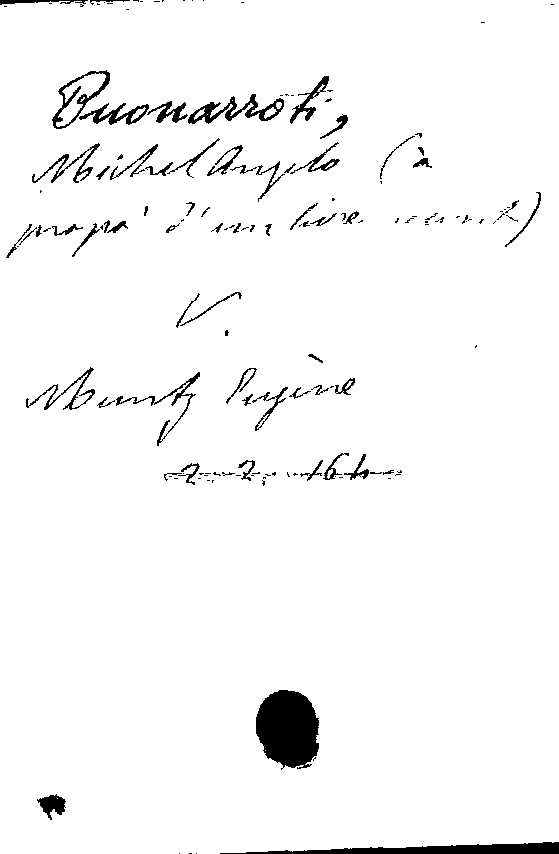 Buonarroti,
Michel Angelo (à
propo' d'un livre récent)
V.
Muntz Eugène
2. 2. 161